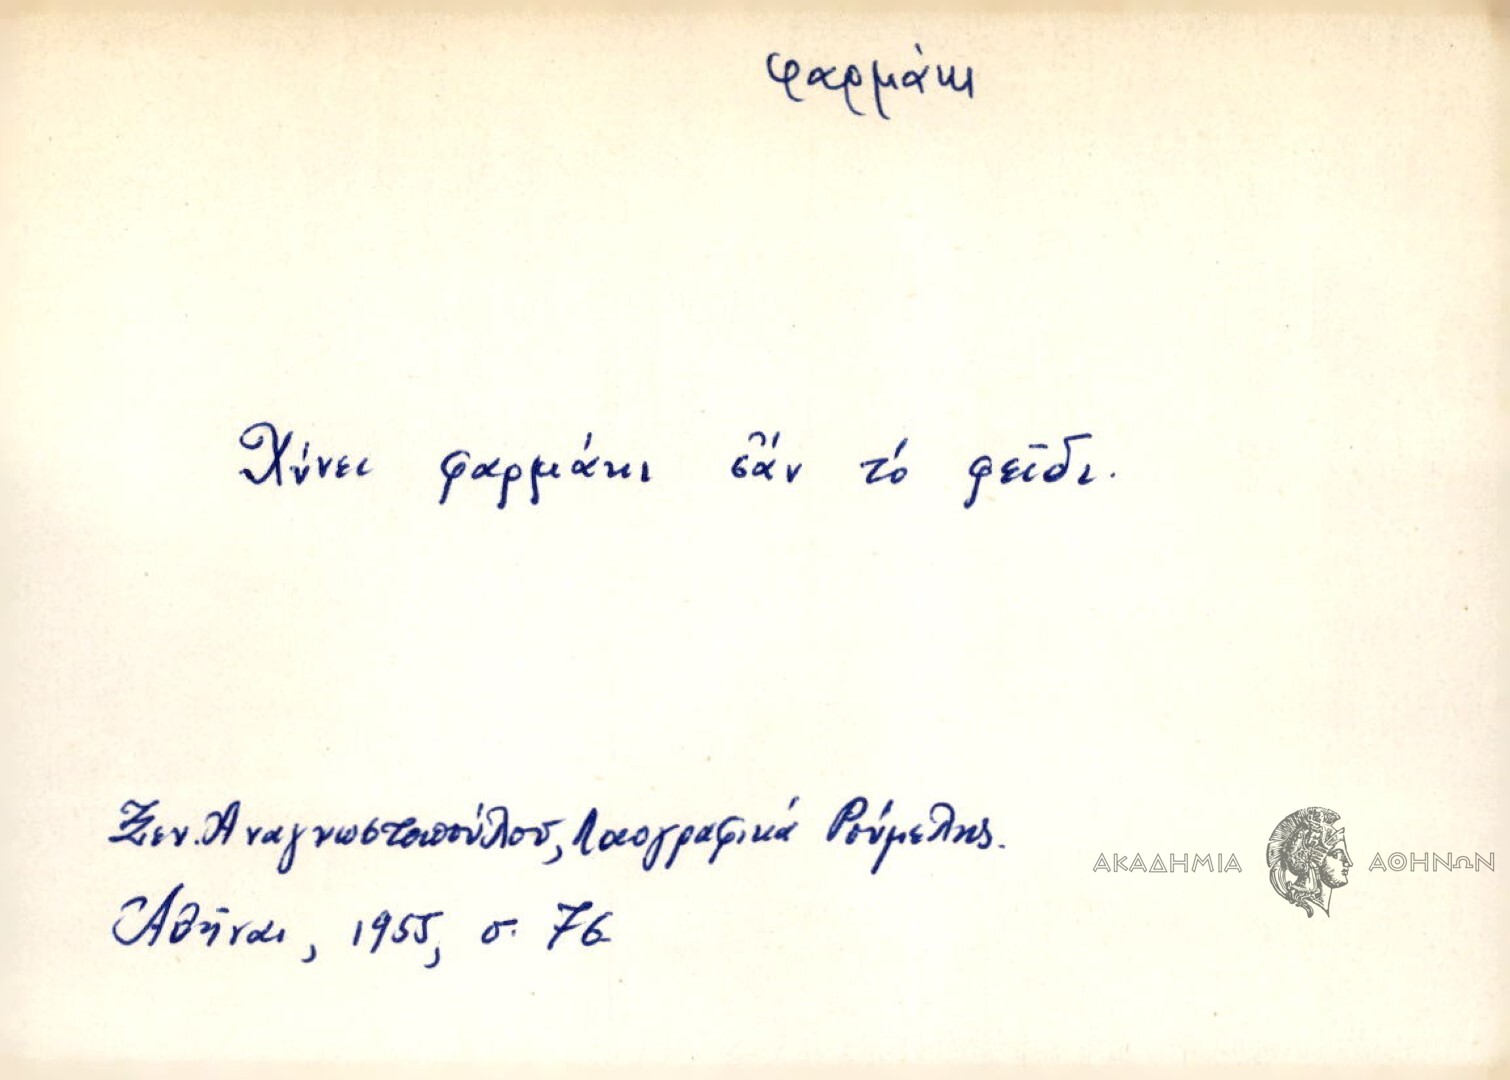 φαρμάκι
Χύνει φαρμάκι σάν τό φεῖδι.
Ξεν. Αναγνωστοπούλου, Λαογραφικά Ρούμελης.
Ἀθῆναι, 1955, σ. 76
ΑΚΑΔΗΜΙΑ ΑΘΗΝΩΝ